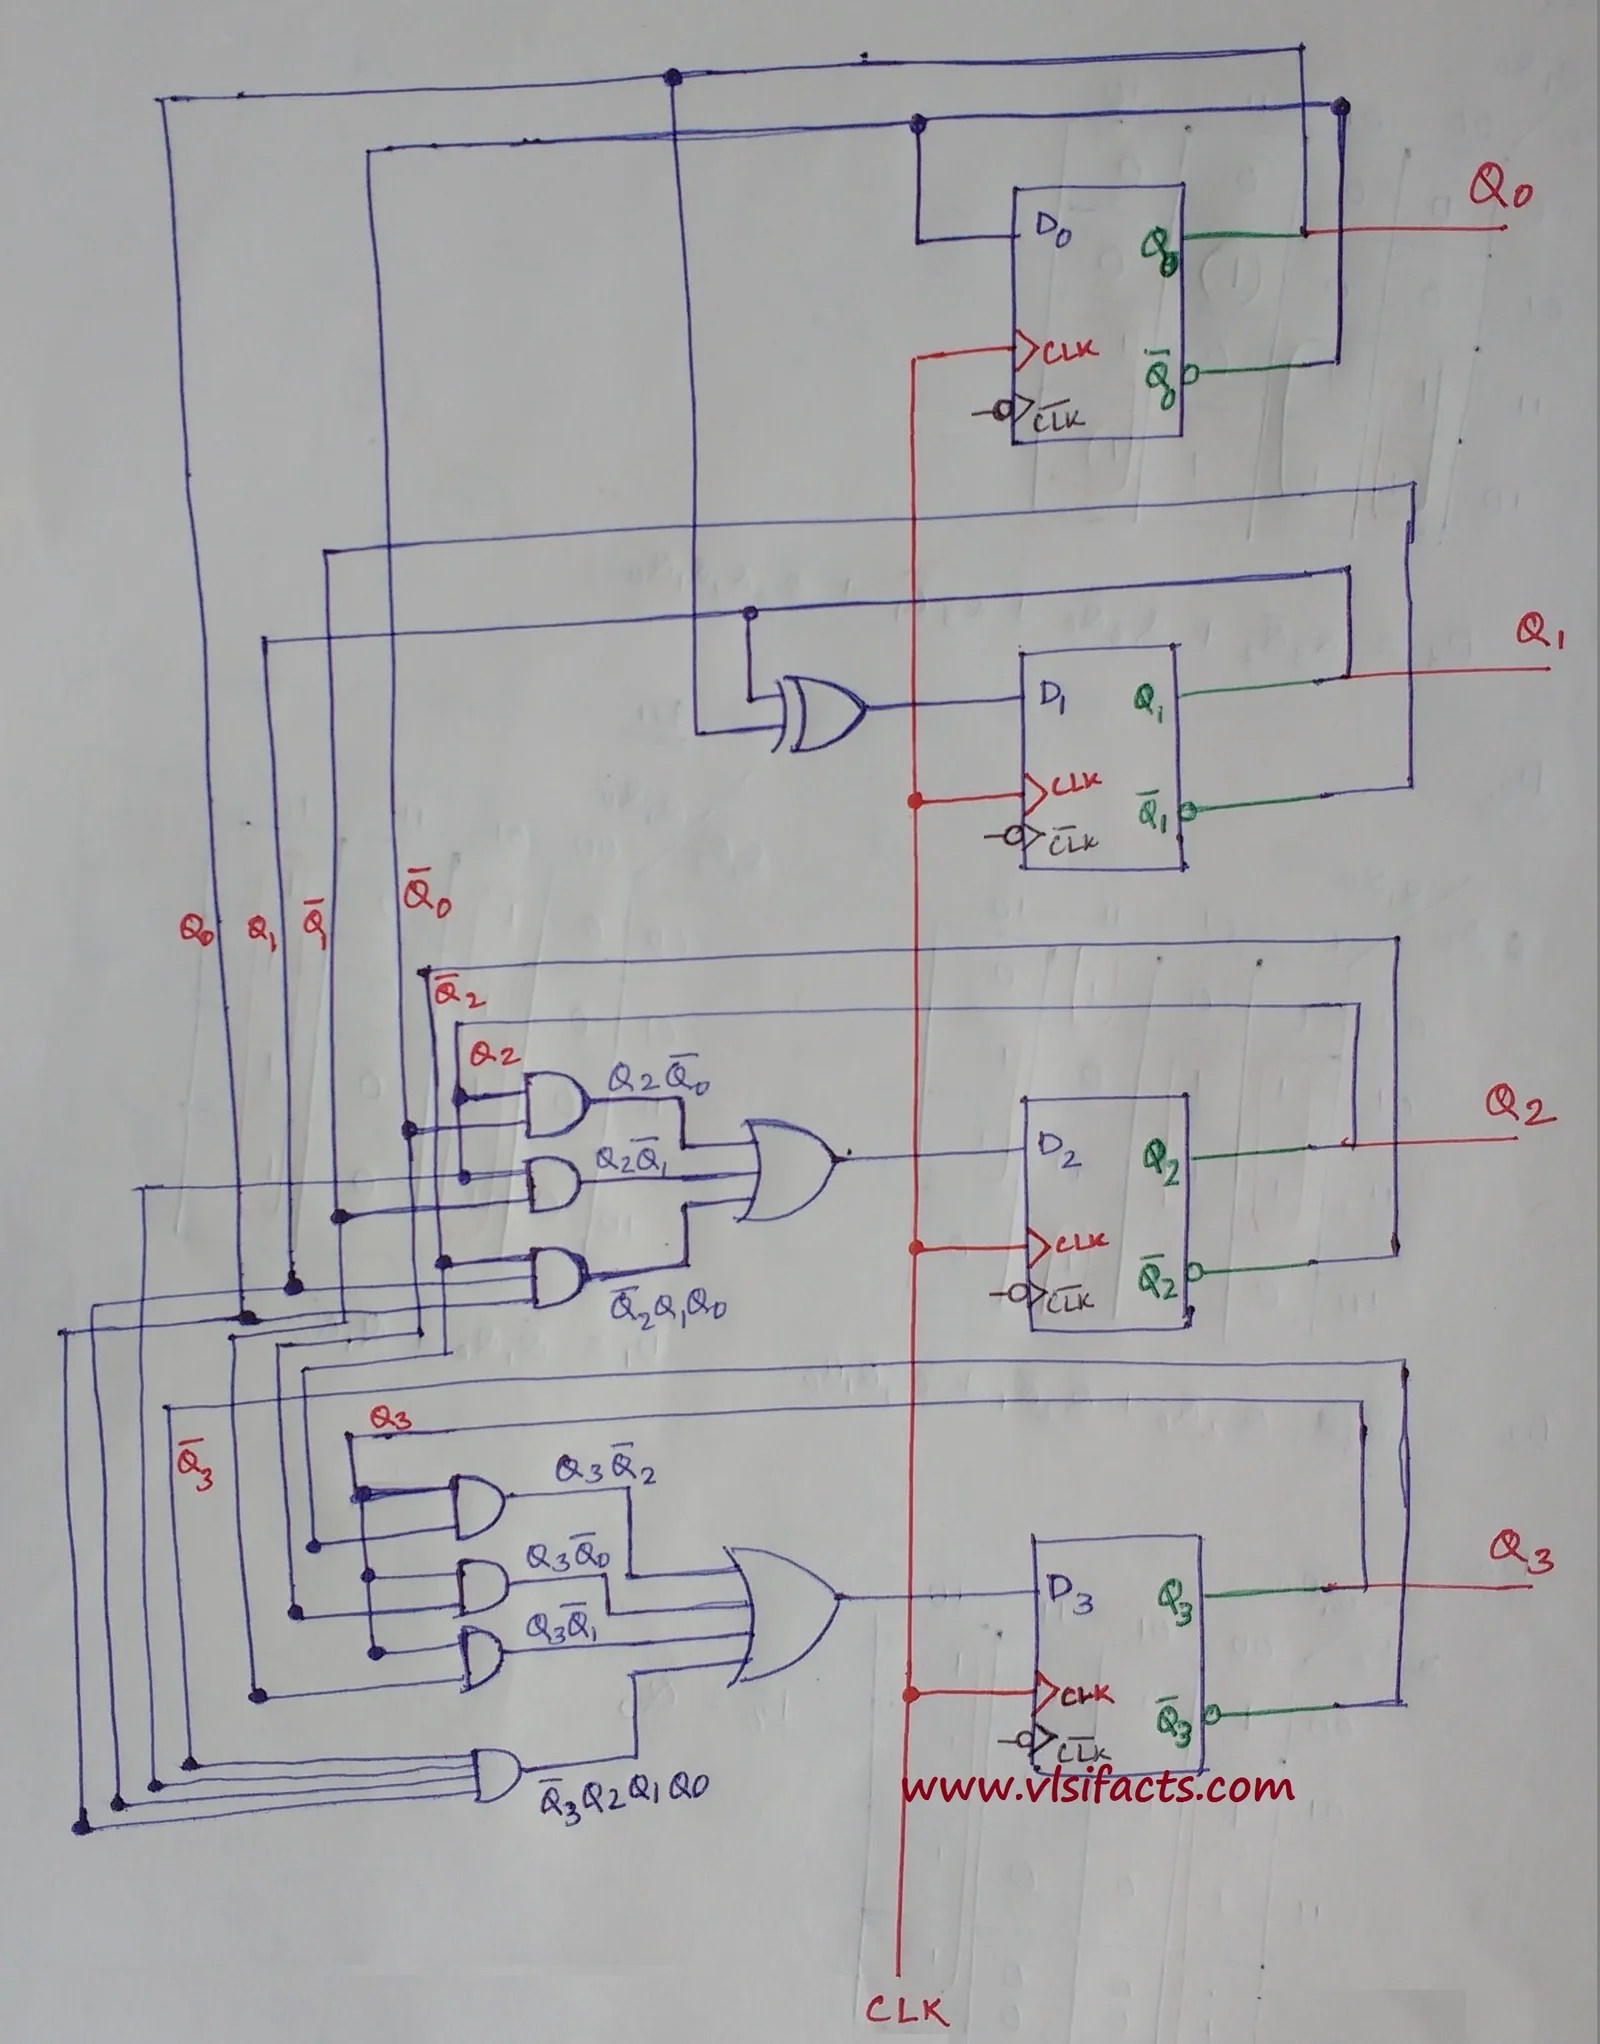 Q0
D0 Q0
CLK Q̅0
C̅L̅K̅
Q1
D1 Q1
CLK Q̅1
C̅L̅K̅
Q0 Q1 Q̅1 Q̅0
Q̅2
Q2
Q2Q̅0
Q2Q̅1
Q̅2Q1Q0
Q2
D2 Q2
CLK Q̅2
C̅L̅K̅
Q3
Q̅3
Q3Q̅2
Q3Q̅0
Q3Q̅1
Q̅3Q2Q1Q0
Q3
D3 Q3
CLK Q̅3
C̅L̅K̅
www.vlsifacts.com
CLK